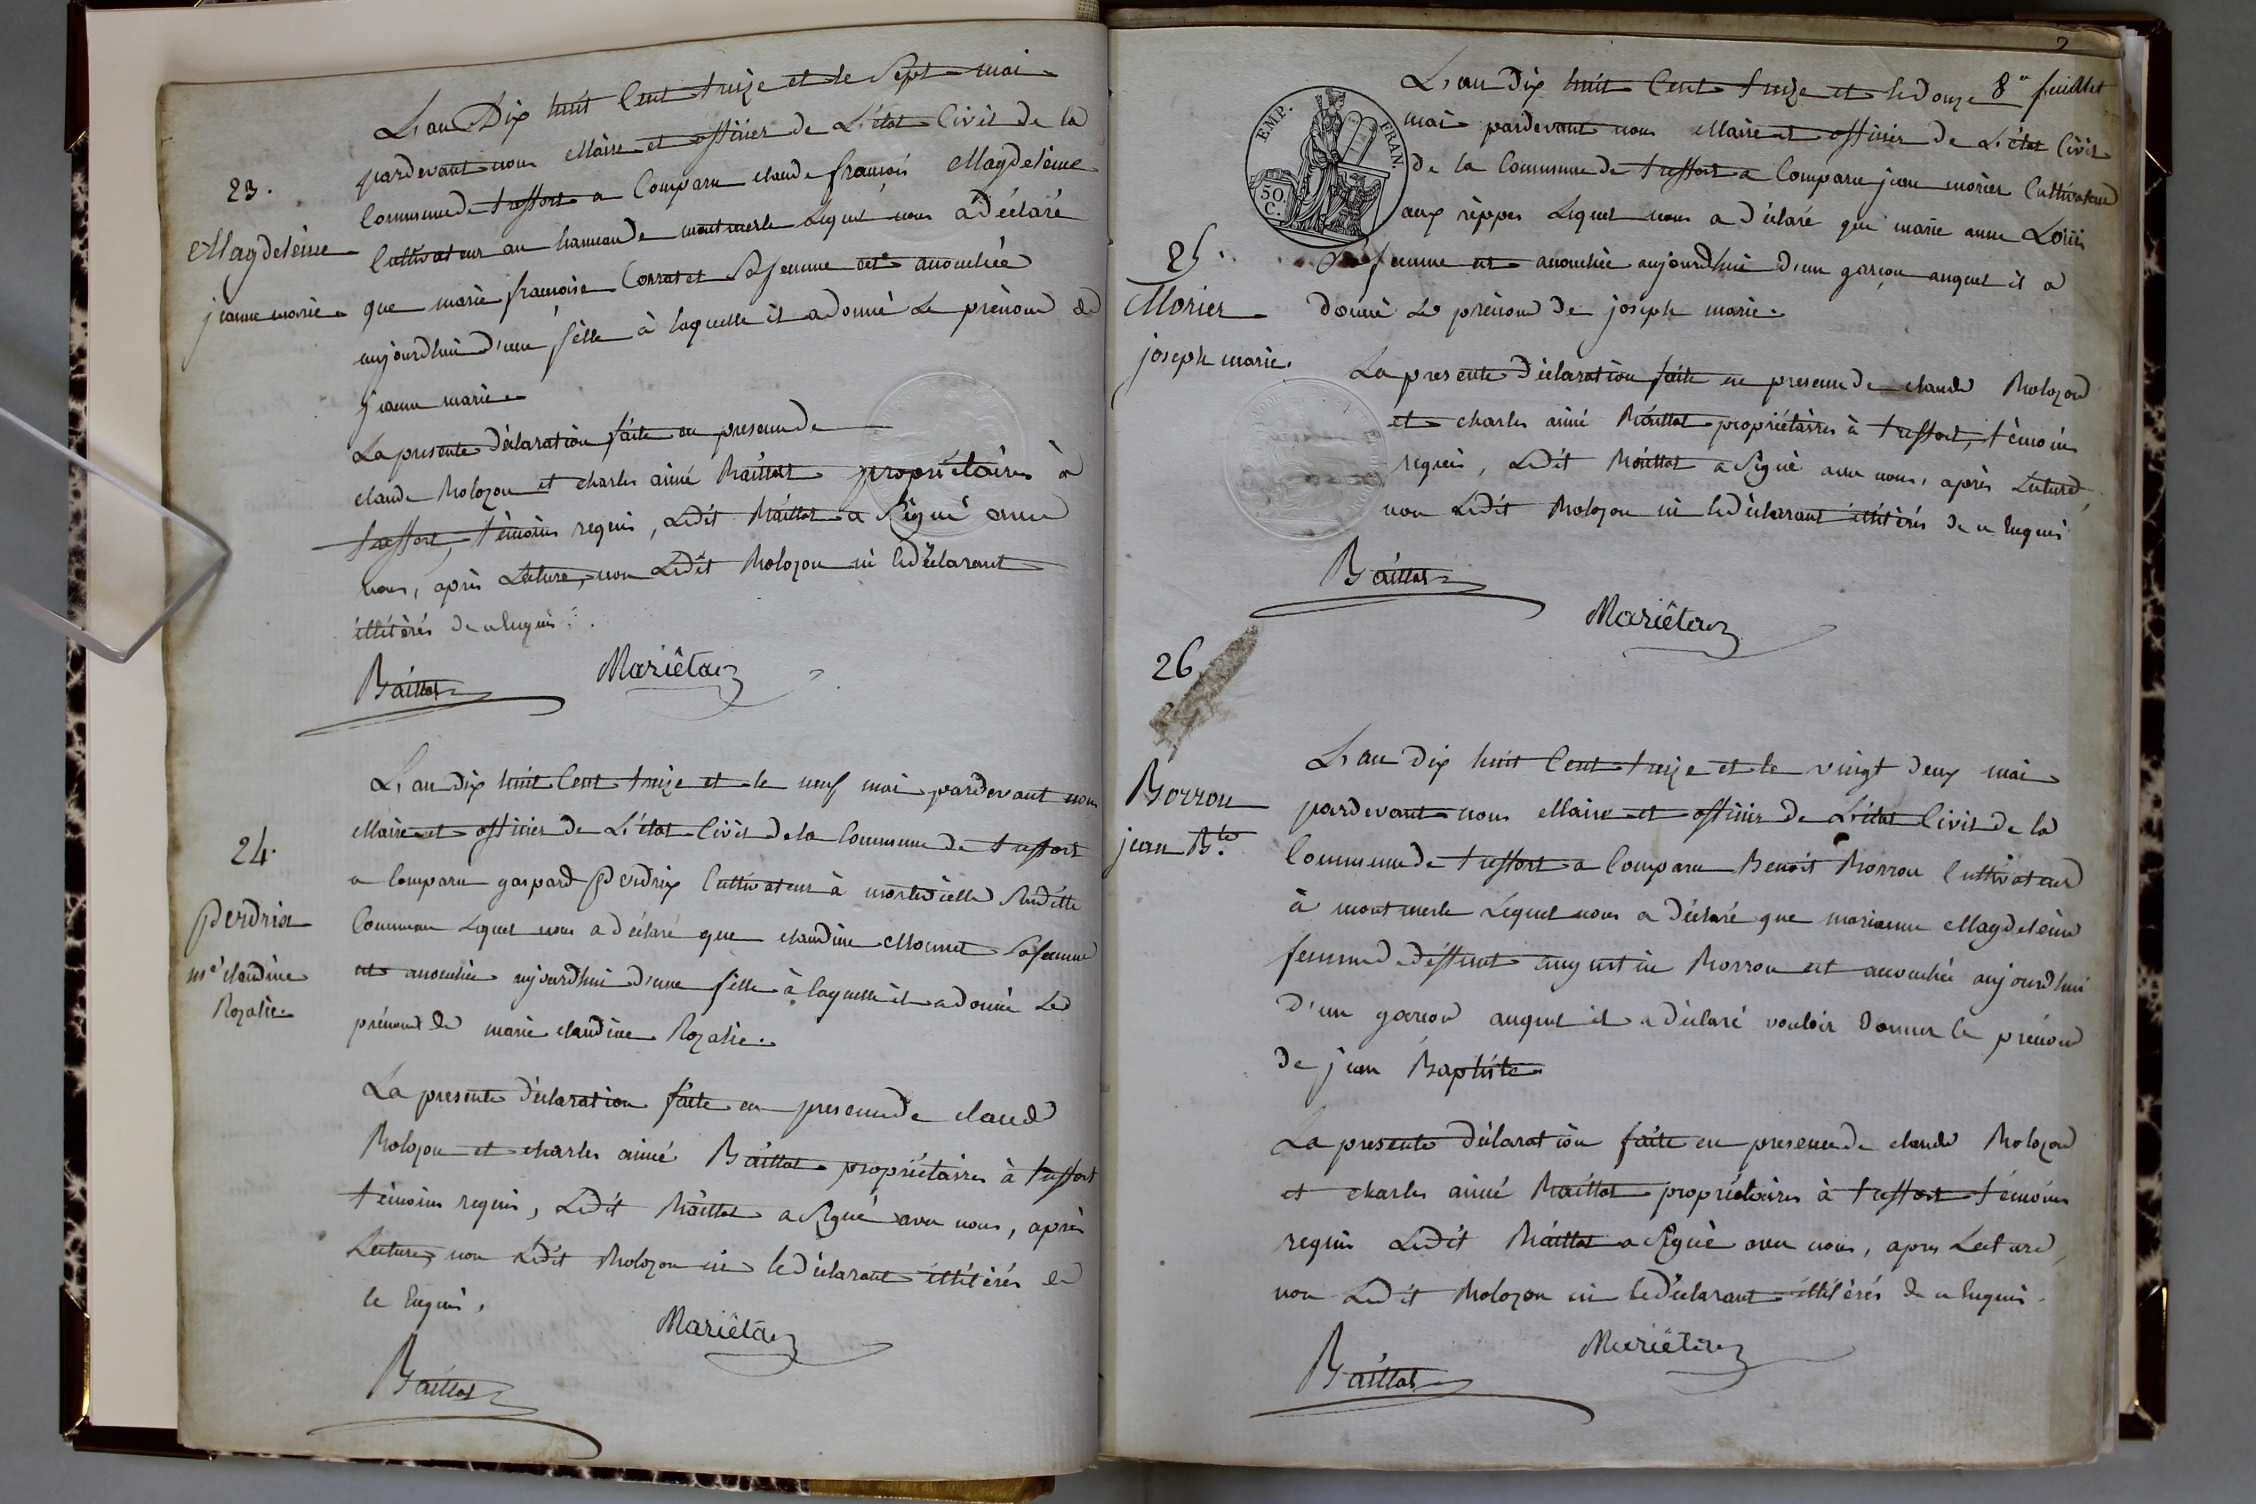 23.
Magdeleine
jeanne marie
L'an Dix huit Cent treize et le Sept mai
pardevant nous Maire et officier de L'état Civil de la
Commune de treffort a Comparu claude françois Magdeleine
Cultivateur au hameau de montmerle Lequel nous a déclaré
que marie françoise Corratet Sa femme est accouchée
aujourdhui d'une fille à laquelle il a donné Le prénom de
jeanne marie
La presente déclaration faite en presence de
claude Bolozon et charles aimé Baillat propriétaires à
treffort, témoins requis, Ledit Baillat a Signé avec
nous, après Lecture, non Ledit Bolozon ni le déclarant
illitérés de ce Enquis.
Baillat Mariétan
24.
perdrix
mie claudine
Rozalie
L'an dix huit Cent treize et le neuf mai pardevant nous
Maire et officier de L'état Civil de la Commune de treffort
a Comparu gaspard perdrix Cultivateur à Sudite
Commune Lequel nous a déclaré que claudine Monnet Sa femme
est accouchée aujourdhui d'une fille à laquelle il a donné Le
prénom de marie claudine Rozalie.
La presente déclaration faite en presence de claude
Bolozon et charles aimé Baillat propriétaires à treffort
témoins requis, Ledit Baillat a Signé avec nous, après
Lecture, non Ledit Bolozon ni le déclarant illitérés de
ce Enquis.
Mariétan
Baillat
2
8e feuillet
EMP. FRAN.
50 C.
25.
Morier
joseph marie.
L'an Dix huit Cent treize et le Douze
mai pardevant nous Maire et officier de L'état Civil
de la Commune de treffort a Comparu jean morier Cultivateur
aux rippes Lequel nous a déclaré que marie anne
Sa femme est accouchée aujourdhui d'un garçon auquel il a
donné Le prénom de joseph marie.
La presente déclaration faite en presence de claude Bolozon
et charles aimé Baillat propriétaires à treffort, témoins
requis, Ledit Baillat a Signé avec nous, après Lecture,
non Ledit Bolozon ni le déclarant illitérés de ce Enquis
Baillat
Mariétan
26
Borron
jean Bte
L'an Dix huit Cent treize et le vingt deux mai
pardevant nous Maire et officier de L'état Civil de la
Commune de treffort a Comparu Benoit Borron Cultivateur
à montmerle Lequel nous a déclaré que marianne Magdeleine
femme de deffunt augustin Borron est accouchée aujourdhui
d'un garçon auquel il a déclaré vouloir donner le prénom
de jean Baptiste
La presente déclaration faite en presence de claude Bolozon
et charles aimé Baillat propriétaires à treffort témoins
requis Ledit Baillat a Signé avec nous, apres Lecture,
non Ledit Bolozon ni le déclarant illitérés de ce Enquis.
Mariétan
Baillat